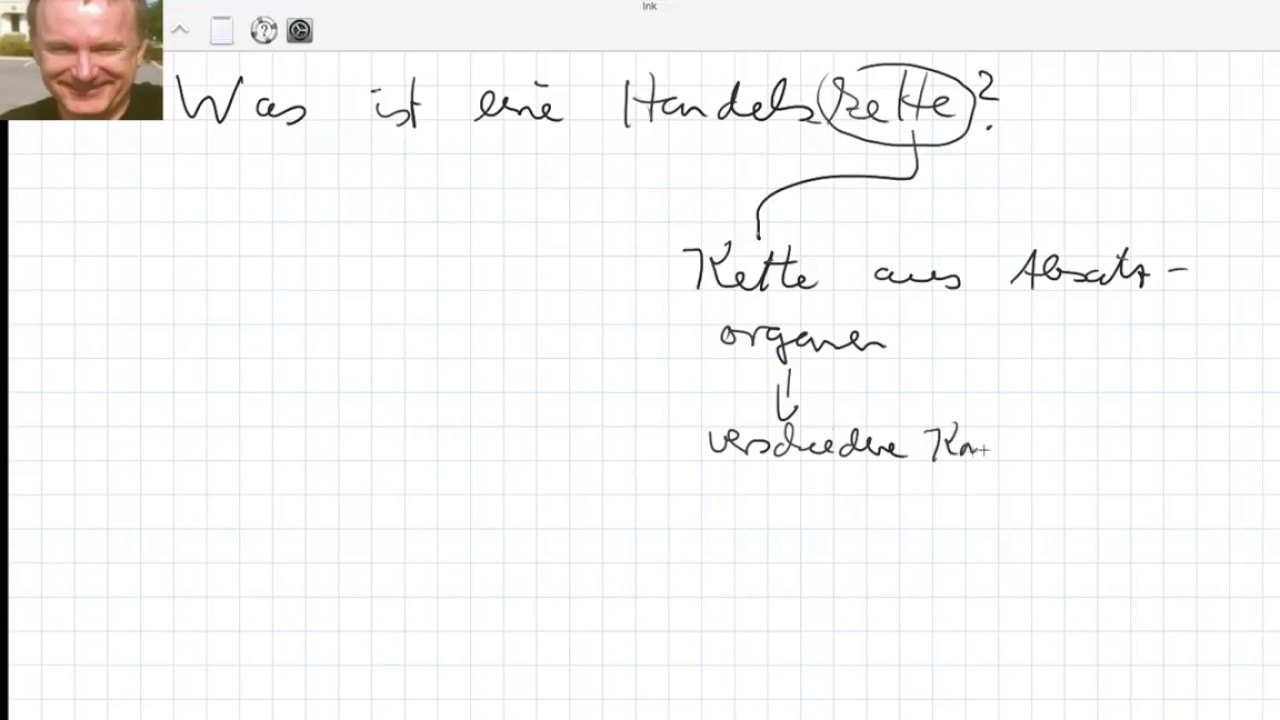 Ink
Was ist eine Handelskette?
Kette aus Absatz-
organen
verschiedene